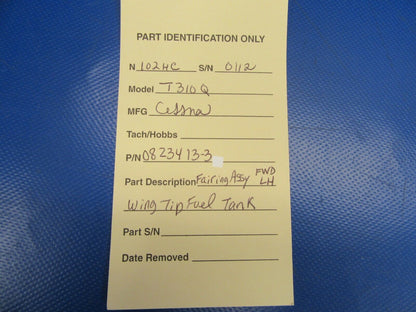 PART IDENTIFICATION ONLY
N 102HC S/N 0112
Model T310Q
MFG Cessna
Tach/Hobbs
P/N 0823413-3
Part Description Fairing Assy FWD LH
Wing Tip Fuel Tank
Part S/N
Date Removed